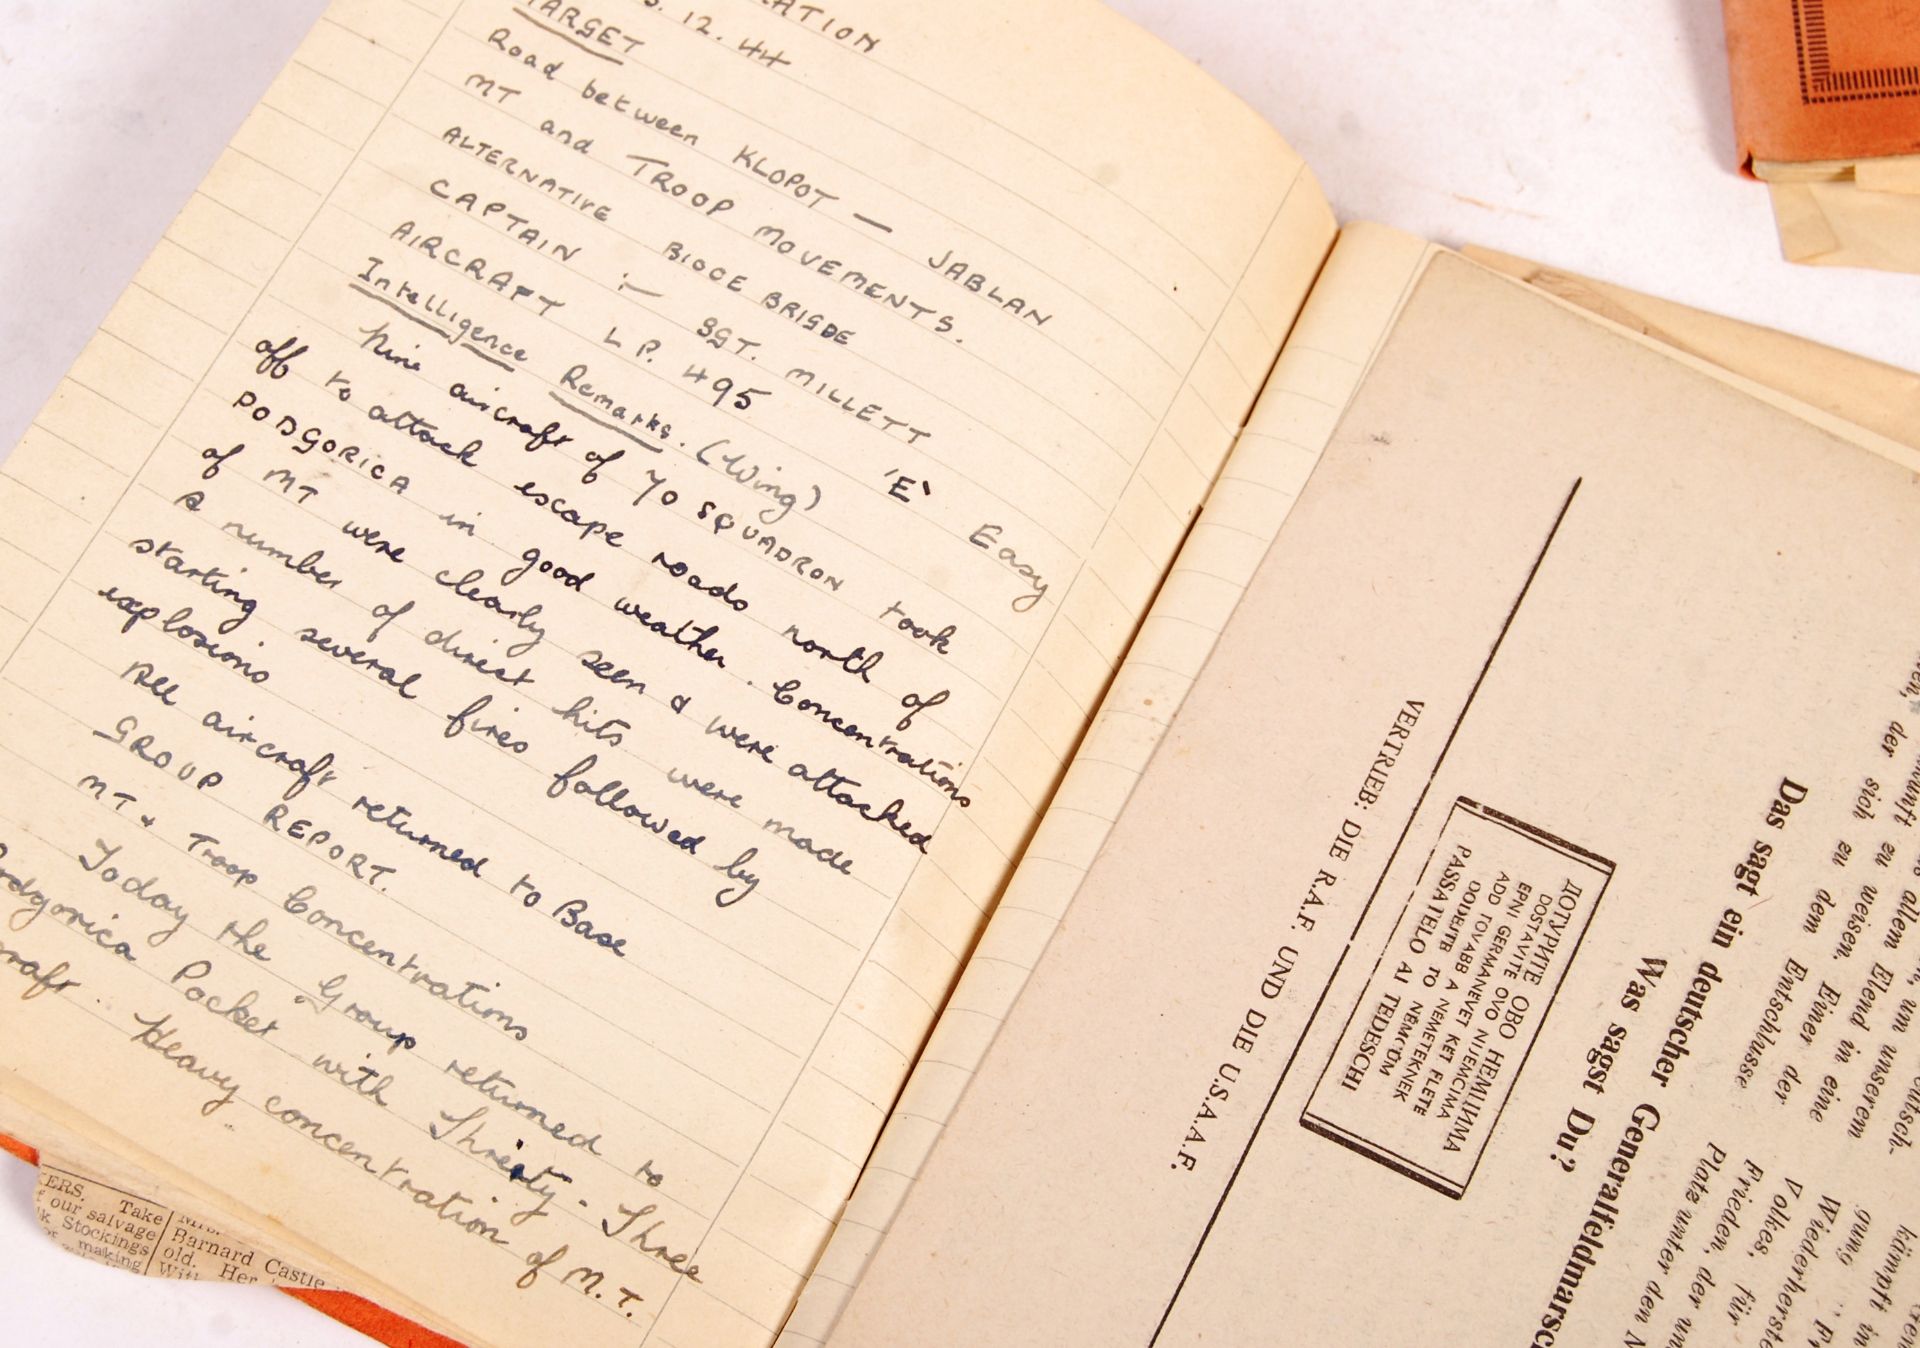 TARGET
12. 44
Road between KLOPOT — JABLAN
MT and TROOP MOVEMENTS.
ALTERNATIVE BIOCE BRIGDE
CAPTAIN :- SGT. MILLETT
AIRCRAFT L P. 495 'E' Easy
Intelligence Remarks. (Wing)
Nine aircraft of 70 SQUADRON took
off to attack escape roads north of
PODGORICA in good weather. Concentrations
of MT were clearly seen & were attacked
a number of direct hits were made
starting several fires followed by
explosions
All aircraft returned to Base
GROUP REPORT.
MT & Troop Concentrations
Today the Group returned to
Podgorica Pocket with Thirty-Three
Heavy concentration of M.T.
Take
our salvage
Stockings
making
Barnard Castle
old. Her
VERTRIEB: DIE R.A.F. UND DIE U.S.A.A.F.
ДОТУРИТЕ ОВО НЕМЦИМА
DOSTAVITE OVO NIJEMCIMA
EPNI GERMANEVET KET FLETE
ADD TOVABB A NEMETEKNEK
PASSATELO AI TEDESCHI
Das sagt ein deutscher Generalfeldmarsc
Was sagst Du?
allem Elend in eine
zu weisen. Einer der
der sich zu dem Entschlusse
um unserem
kämpft in
gung
Wiederherste
Volkes, für
Frieden, der un
Platz unter den N